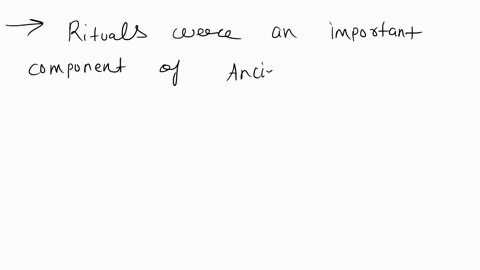 → Rituals were an important
component of Anci-